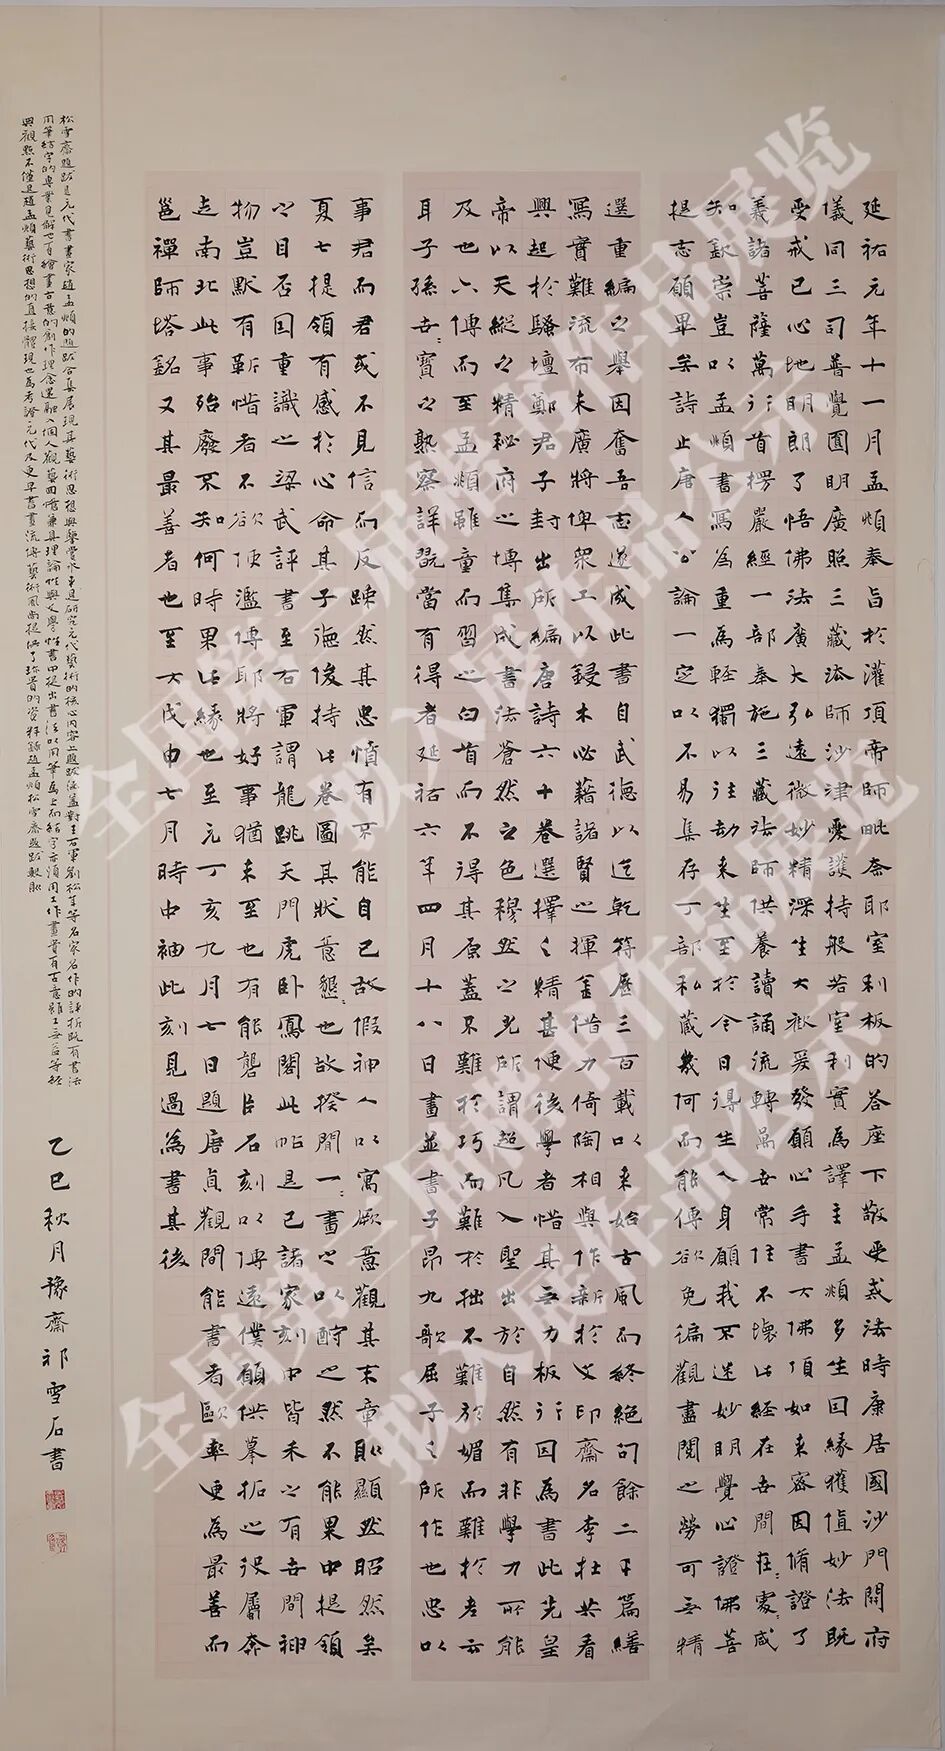 延祐元年十一月孟頫奉旨於灌頂帝師毗奈耶室利板的荅座下敬受戒法時康居國沙門開府
儀同三司普覺圓明廣照三藏法師沙津愛護持般若室利實為譯主孟頫多生因緣獲值妙法既
受戒已心地明朗了悟佛法廣大弘遠微妙精深生大歡爰發願心手書大佛頂如來密因脩證了
義諸菩薩萬行首楞嚴經一部奉施三藏法師供養讀誦流轉萬世常住不壞此經在世間在在處處咸
知欽崇豈以孟頫書寫為重為輕獨以往劫來生至於今日得生人身願我不迷妙明覺心證佛菩
提志願畢矣詩止唐人公論一定以不易集存丁部私藏幾何而能傳欲免徧觀盡閱之勞可無精
選重編之舉因奮吾志遂成此書自武德以迄乾符歷三百載以来始古風而終絕句餘二千篇繕
寫實難流布未廣將俾眾工以鋟木必藉諸賢之揮金借力倚陶相與作新於文印齋名李杜共看
興起於騷壇鄭君子封出所編唐詩六十卷選擇之精甚便後學者惜其無力板行因為書此先皇
帝以天縱之精秘府之博集成書法蒼然之色穆然之光所謂超凡入聖出於自然有非學力所能
及也六傳而至孟頫雖童而習之白首而不得其原蓋不難於巧而難於拙不難於媚而難於老云
耳子孫世寶之熟察詳翫當有得者延祐六年四月十八日畫並書子昂九歌屈子之所作也忠以
事君而君或不見信而反疎然其忠憤有不能自已故假神人以寓厥意觀其末章則顯然昭然矣
夏七提領有感於心命其子德俊持此卷圖其狀意懇懇也故揆閒一一畫之以酧之然不能果中提領
之目否因重識之梁武評書至右軍謂龍跳天門虎臥鳳閣此帖是已諸家刻中皆未之有世間神
物豈默有靳惜者不欲便濫傳耶將好事猶未至也有能礱巨石刻以傳遠僕願供摹拓之役屬奔
走南北此事殆廢不知何時果此緣也至元丁亥九月七日題唐貞觀間能書者歐率更為最善而
邕禪師塔銘又其最善者也至大戊申七月時中袖此刻見過為書其後
松雪齋題跋是元代書畫家趙孟頫的題跋合集展現其藝術思想與鑒賞水平是研究元代藝術的核心內容之一題跋涵蓋對王右軍劉松年等名家名作的評析既有書法
用筆結字的專業見解也有繪畫古意的創作理念還融入個人觀藝回憶兼具理論性與文學性書中提出書法以用筆為上而結字亦須用工作畫貴有古意雖工無益等經
典觀點不僅是趙孟頫藝術思想的直接體現也為考證元代及更早書畫流傳藝術風尚提供了珍貴的資料錄趙孟頫松雪齋題跋數則
乙巳秋月豫齋祁雪石書
全国第三届楷书作品展览
拟入展作品公示
全国第三届楷书作品展览
拟入展作品公示